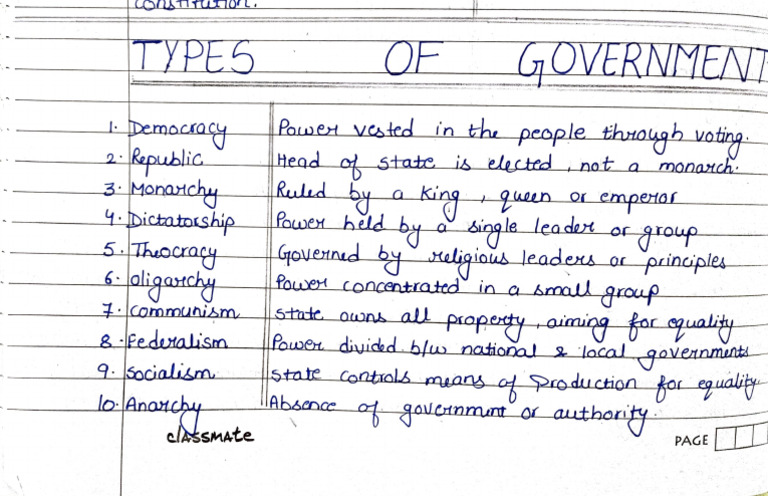 constitution.
TYPES OF GOVERNMENT
1. Democracy Power vested in the people through voting.
2. Republic Head of state is elected, not a monarch.
3. Monarchy Ruled by a King, queen or emperor
4. Dictatorship Power held by a single leader or group
5. Theocracy Governed by religious leaders or principles
6. oligarchy Power concentrated in a small group
7. communism state owns all property, aiming for equality
8. Federalism Power divided b/w national & local governments
9. socialism state controls means of Production for equality
10. Anarchy Absence of government or authority.
classmate PAGE